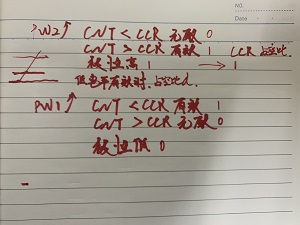 NO.
Date
PW2↑ CNT < CCR 无效 0
CNT > CCR 有效 1 CCR 占空比
极性高 1 → 1
低电平有效时,占空比
PW1↑ CNT < CCR 有效 1
CNT > CCR 无效 0
极性低 0